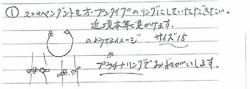 ① 2つのペンダントをオープンタイプのリングにしていただきたい。
のようなイメージ サイズ15
プラチナリングでおねがいします。